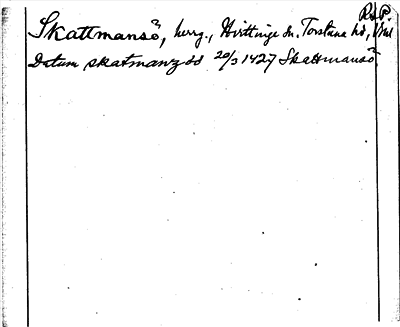 RAP.
Skattmansö, herrg., Härtinge sn. Torstuna hd, Vml
Datum skatmanzöö 20/3 1427 Skattmansö